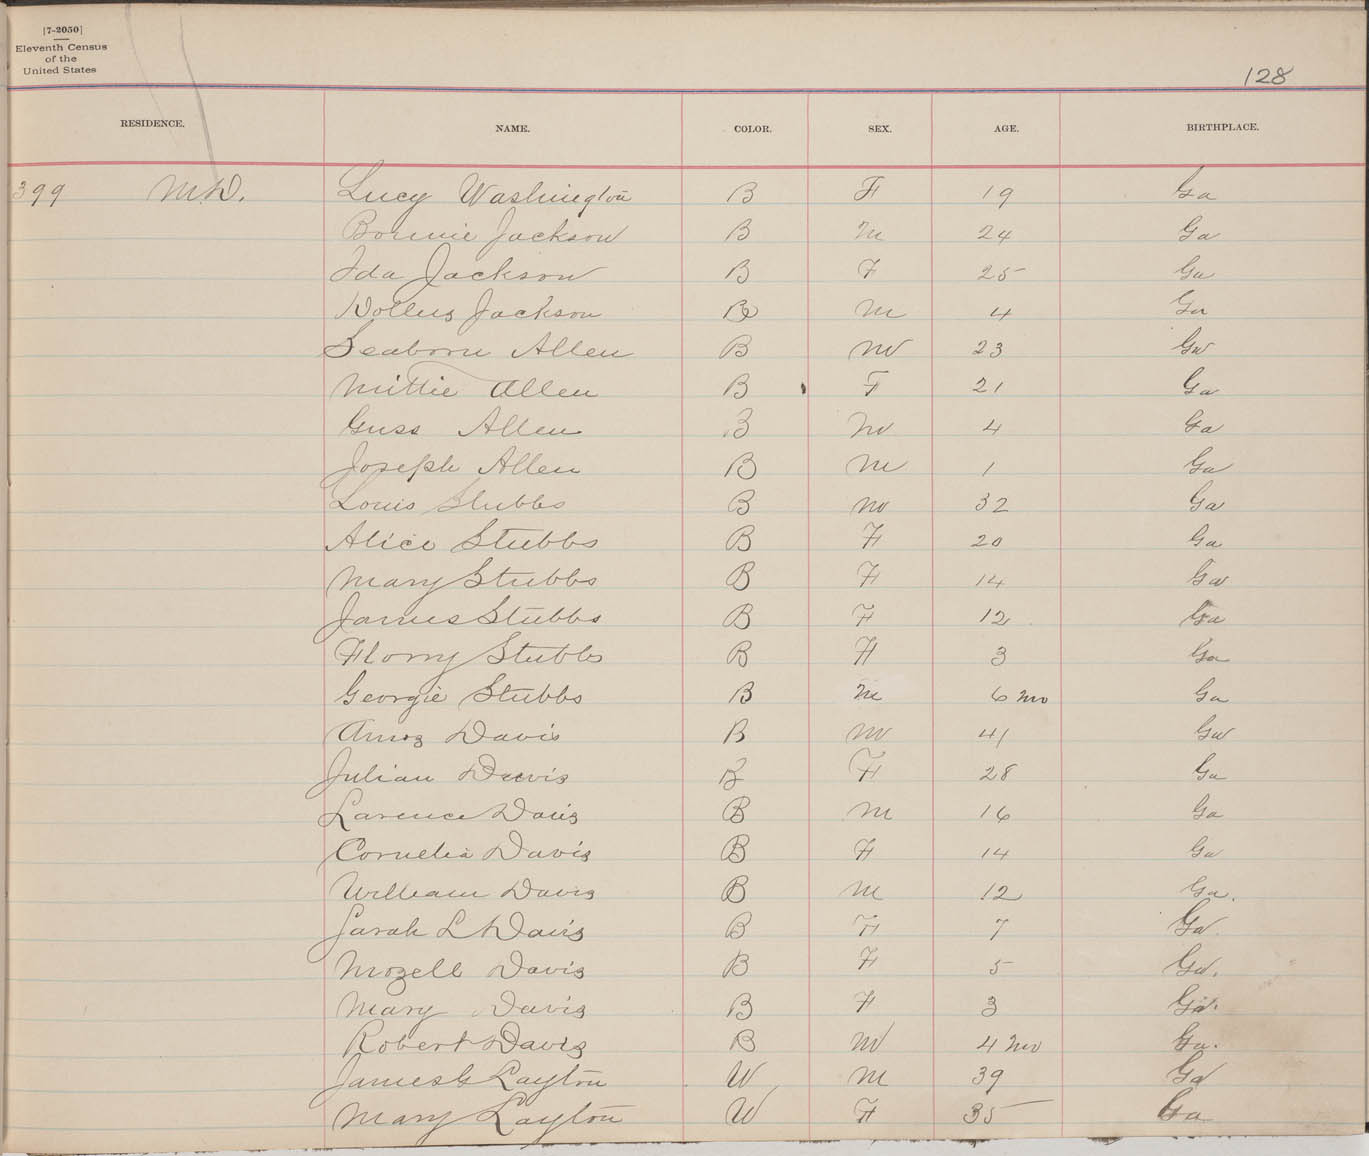 [7-2050]
Eleventh Census
of the
United States
128
RESIDENCE. NAME. COLOR. SEX. AGE. BIRTHPLACE.
399 M.D. Lucy Washington B F 19 Ga
Bonnie Jackson B M 24 Ga
Ida Jackson B F 25 Ga
Jackson B M 4 Ga
Seaborn Allen B M 23 Ga
Mittie Allen B F 21 Ga
Guss Allen B M 4 Ga
Joseph Allen B M 1 Ga
Louis Stubbs B M 32 Ga
Alice Stubbs B F 20 Ga
Mary Stubbs B F 14 Ga
James Stubbs B F 12 Ga
Florry Stubbs B F 3 Ga
Georgie Stubbs B M 6 mo Ga
Amos Davis B M 41 Ga
Julian Davis B F 28 Ga
Larence Davis B M 16 Ga
Cornelia Davis B F 14 Ga
William Davis B M 12 Ga.
Sarah L Davis B F 7 Ga.
Mozell Davis B F 5 Ga.
Mary Davis B F 3 Ga.
Robert Davis B M 4 mo Ga.
James G Layton W M 39 Ga
Mary Layton W F 35 Ga